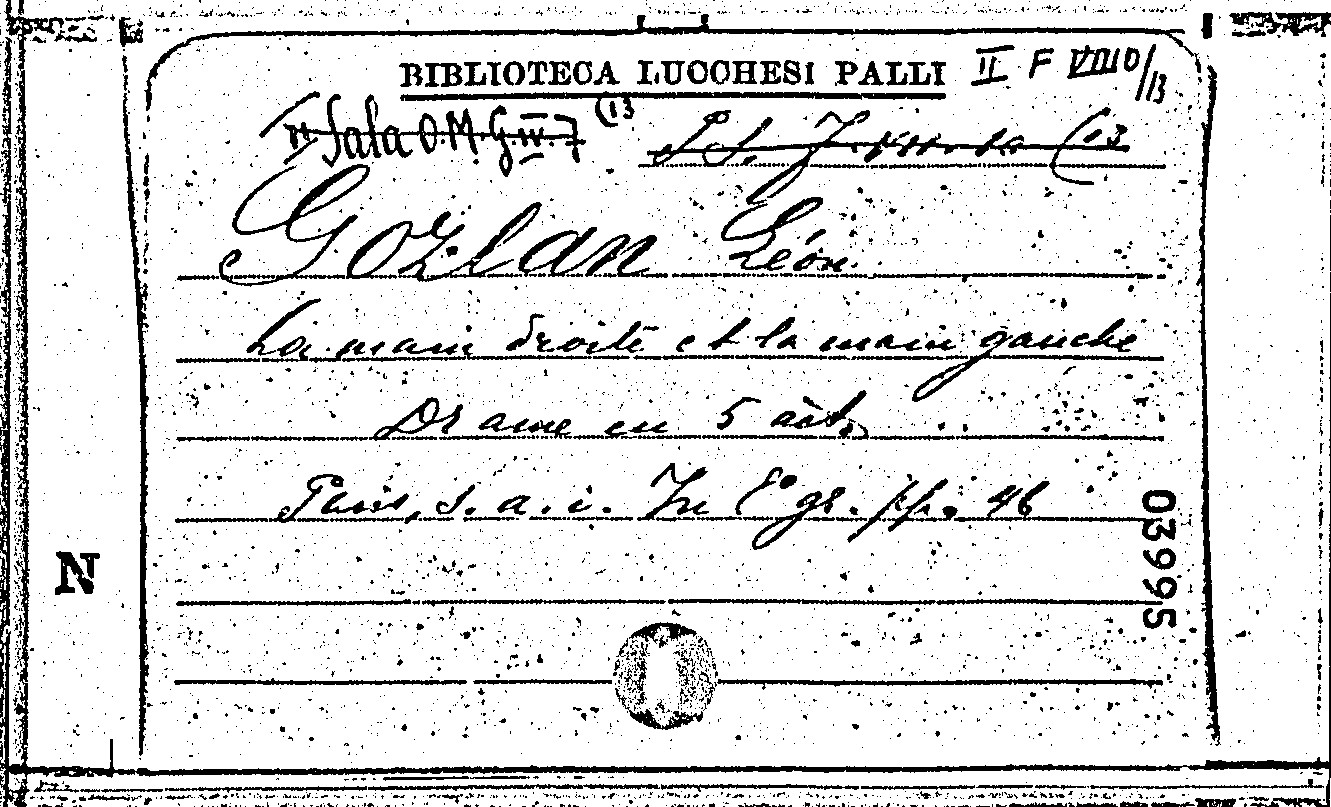 BIBLIOTECA LUCCHESI PALLI II F VIII D/13
Sala O.M.G. IV. 7 (13
(13
Gozlan Léon
La main droite et la main gauche
Drame en 5 act.
Paris, s. a. i. In 8° gr. pp. 46
N
039995